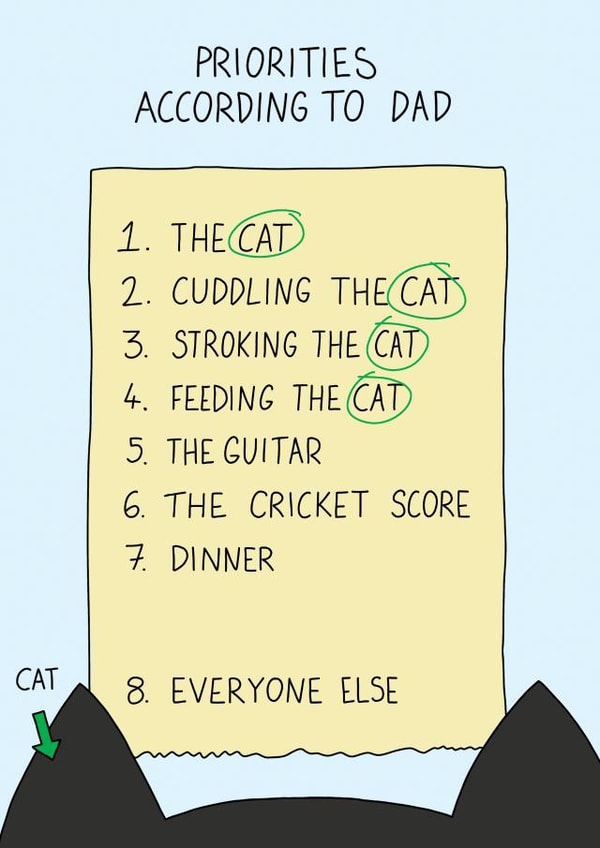 PRIORITIES
ACCORDING TO DAD
1. THE CAT
2. CUDDLING THE CAT
3. STROKING THE CAT
4. FEEDING THE CAT
5. THE GUITAR
6. THE CRICKET SCORE
7. DINNER
8. EVERYONE ELSE
CAT